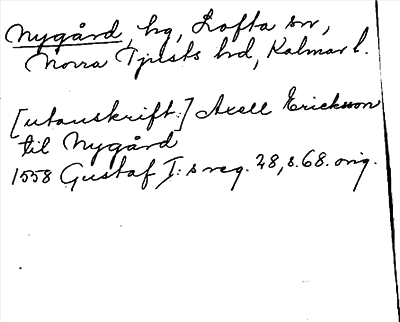 Nygård, hg, Lofta sn,
Norra Tjusts hd, Kalmar l.
[utanskrift:] Axell Ericksson
till Nygård
1558 Gustaf I:s reg. 28, s. 68. orig.